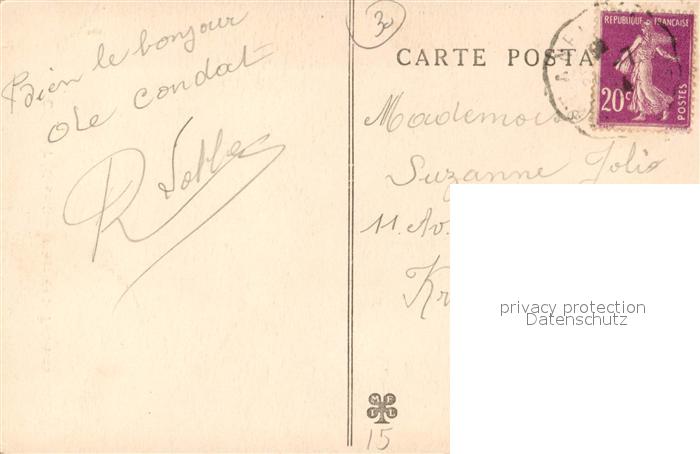 30
CARTE POSTA
REPUBLIQUE FRANÇAISE
20c
POSTES
Bien le bonjour
de condat
Mademoise
Suzanne Jolis
11. Av.
Kr
privacy protection
Datenschutz
M F
I L
15